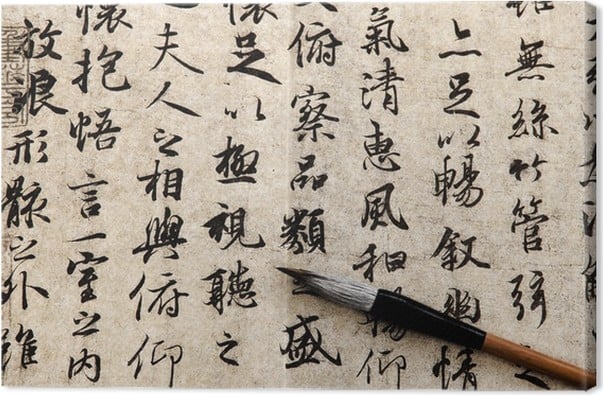 雖無絲竹管弦之
亦足以暢叙幽情
氣清惠風和暢仰
大俯察品類之盛
懷足以極視聽之
夫人之相與俯仰
懷抱悟言一室之內
放浪形骸之外雖